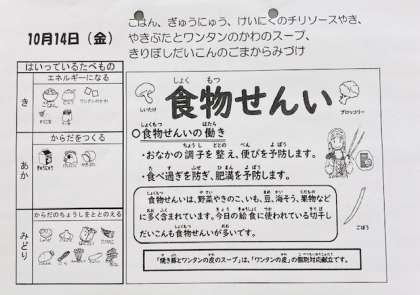 10月14日（金）
ごはん、ぎゅうにゅう、けいにくのチリソースやき、
やきぶたとワンタンのかわのスープ、
きりぼしだいこんのごまからみづけ
はいっているたべもの
エネルギーになる
き
からだをつくる
あか
からだのちょうしをととのえる
みどり
しいたけ
しょく もつ
食物せんい
ブロッコリー
○食物せんいの働き
・おなかの調子を整え、便びを予防します。
・食べ過ぎを防ぎ、肥満を予防します。
ごぼう
食物せんいは、野菜やきのこ、いも、豆、海そう、果物など
に多く含まれています。今日の給食に使われている切干し
だいこんも食物せんいが多いです。
「焼き豚とワンタンの皮のスープ」は、「ワンタンの皮」の個別対応献立です。